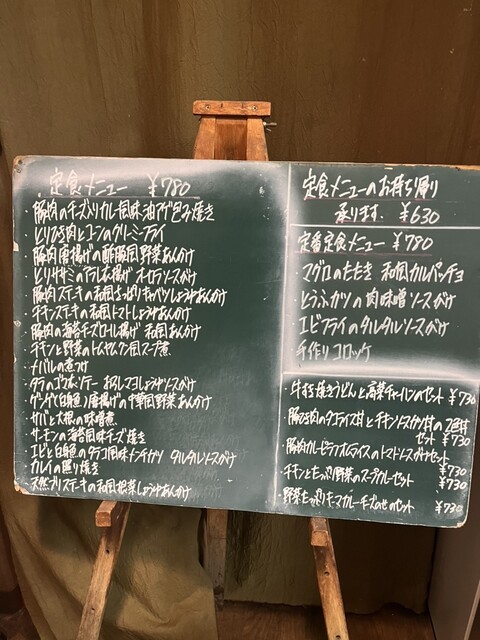 定食メニュー ¥780
・豚肉のチーズ入りカレー風味油アゲ包み焼き
・とりひき肉とコーンのクリーミーフライ
・豚肉唐揚げの酢豚風野菜あんかけ
・とりササミのアラレ揚げ オーロラソースがけ
・豚肉ステーキの和風さっぱりキャベツしょうゆあんかけ
・チキンステーキの和風トマトしょうゆあんかけ
・豚肉の海苔チーズロール揚げ 和風あんかけ
・チキンと野菜のトムヤムクン風スープ煮
・メバルの煮つけ
・タラのゴマポンテー おろしマヨしょうゆソースがけ
(白身魚)唐揚げの中華風野菜あんかけ
・サバと大根の味噌煮
・サーモンの海苔風味チーズ焼き
・エビと白身魚のタラコ風味メンチカツ タルタルソースがけ
・カレイの照り焼き
・天然ブリステーキの和風根菜しょうゆあんかけ
定食メニューのお持ち帰り
承ります. ¥630
定番定食メニュー ¥780
・マグロのたたき 和風カルパッチョ
・とうふカツの肉味噌ソースがけ
・エビフライのタルタルソースがけ
・手作りコロッケ
・牛すき焼きうどんと高菜チャーハンのセット ¥730
・豚ひき肉のタコライス丼とチキンソースカツ丼の2色丼
セット ¥730
・豚肉カレーピラフオムライスのトマトソースがけセット
¥730
・チキンともっぷり野菜のスープカレーセット ¥730
・野菜たっぷりキーマカレーチーズのせのセット ¥730